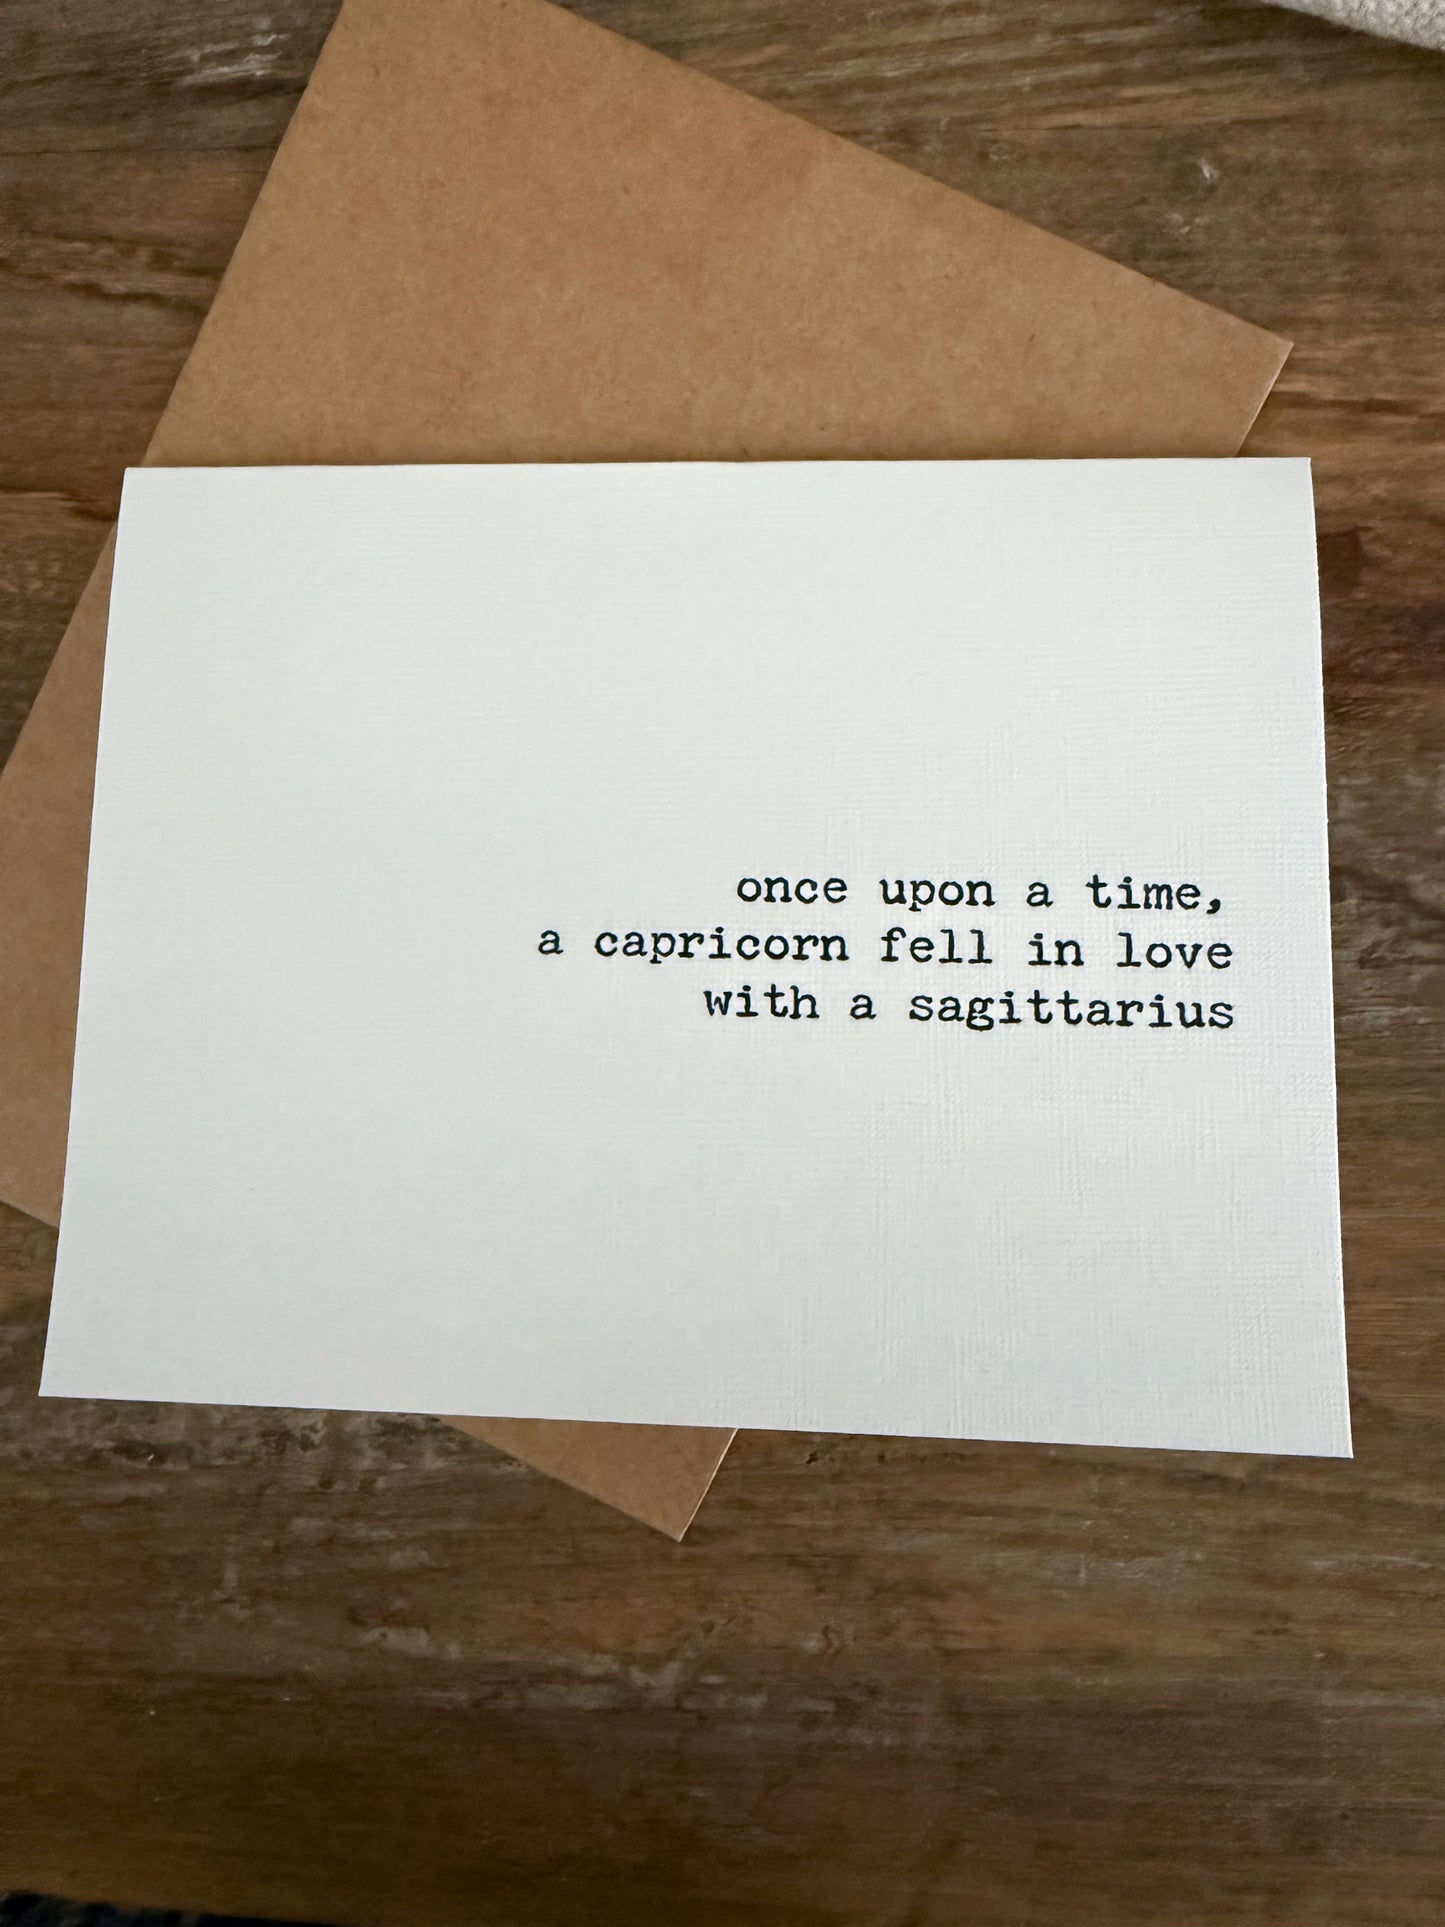 once upon a time,
a capricorn fell in love
with a sagittarius